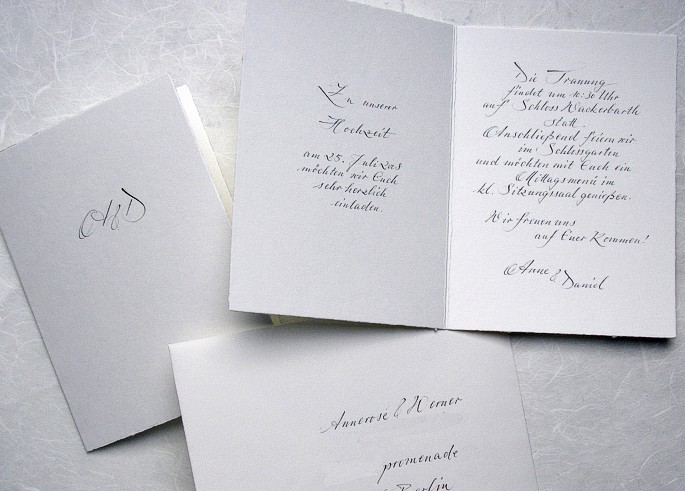 A&D
Zu unserer
Hochzeit
am 25. Juli 2008
möchten wir Euch
sehr herzlich
einladen.
Die Trauung
findet um 10:30 Uhr
auf Schloss Wackerbarth
statt.
Anschließend feiern wir
im Schlossgarten
und möchten mit Euch ein
Mittagsmenü im
kl. Sitzungssaal genießen.
Wir freuen uns
auf Euer Kommen!
Anne &
Daniel
Annerose & Werner
promenade
Berlin